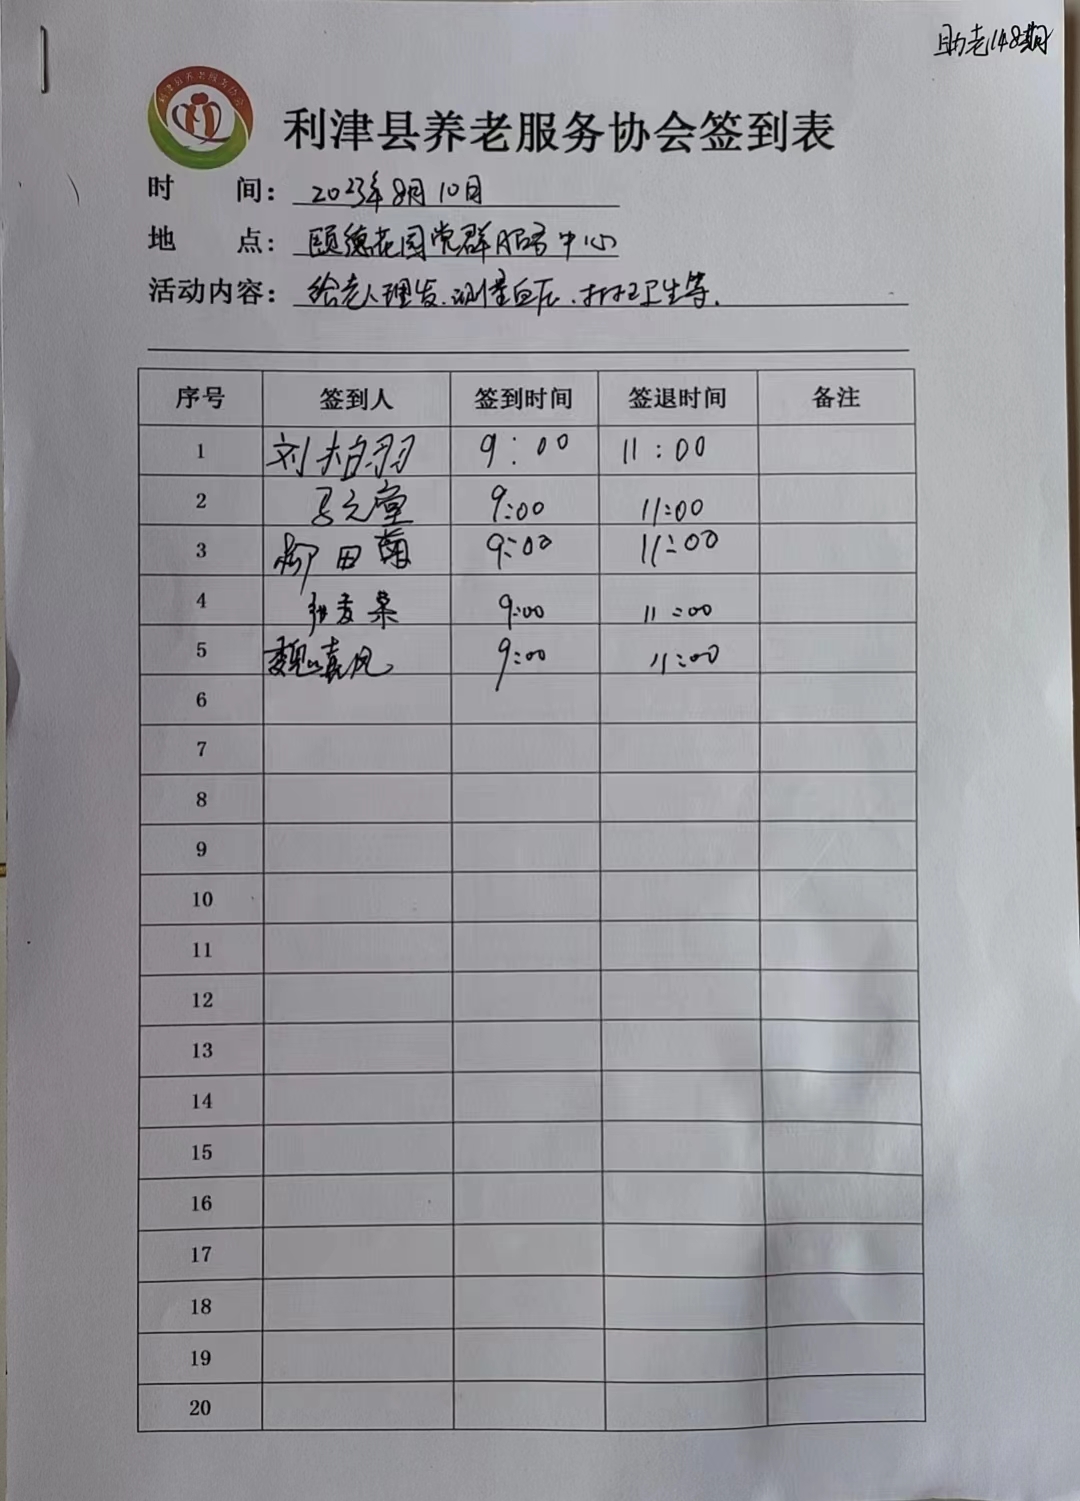 助老148期
利津县养老服务协会
利津县养老服务协会签到表
时 间：2023年8月10日
地 点：颐德花园党群服务中心
活动内容：给老人理发、测量血压、打扫卫生等.
序号 签到人 签到时间 签退时间 备注
1 刘柏羽 9:00 11:00
2 马元堂 9:00 11:00
3 柳田菊 9:00 11:00
4 9:00 11:00
5 魏嘉凤 9:00 11:00
6
7
8
9
10
11
12
13
14
15
16
17
18
19
20